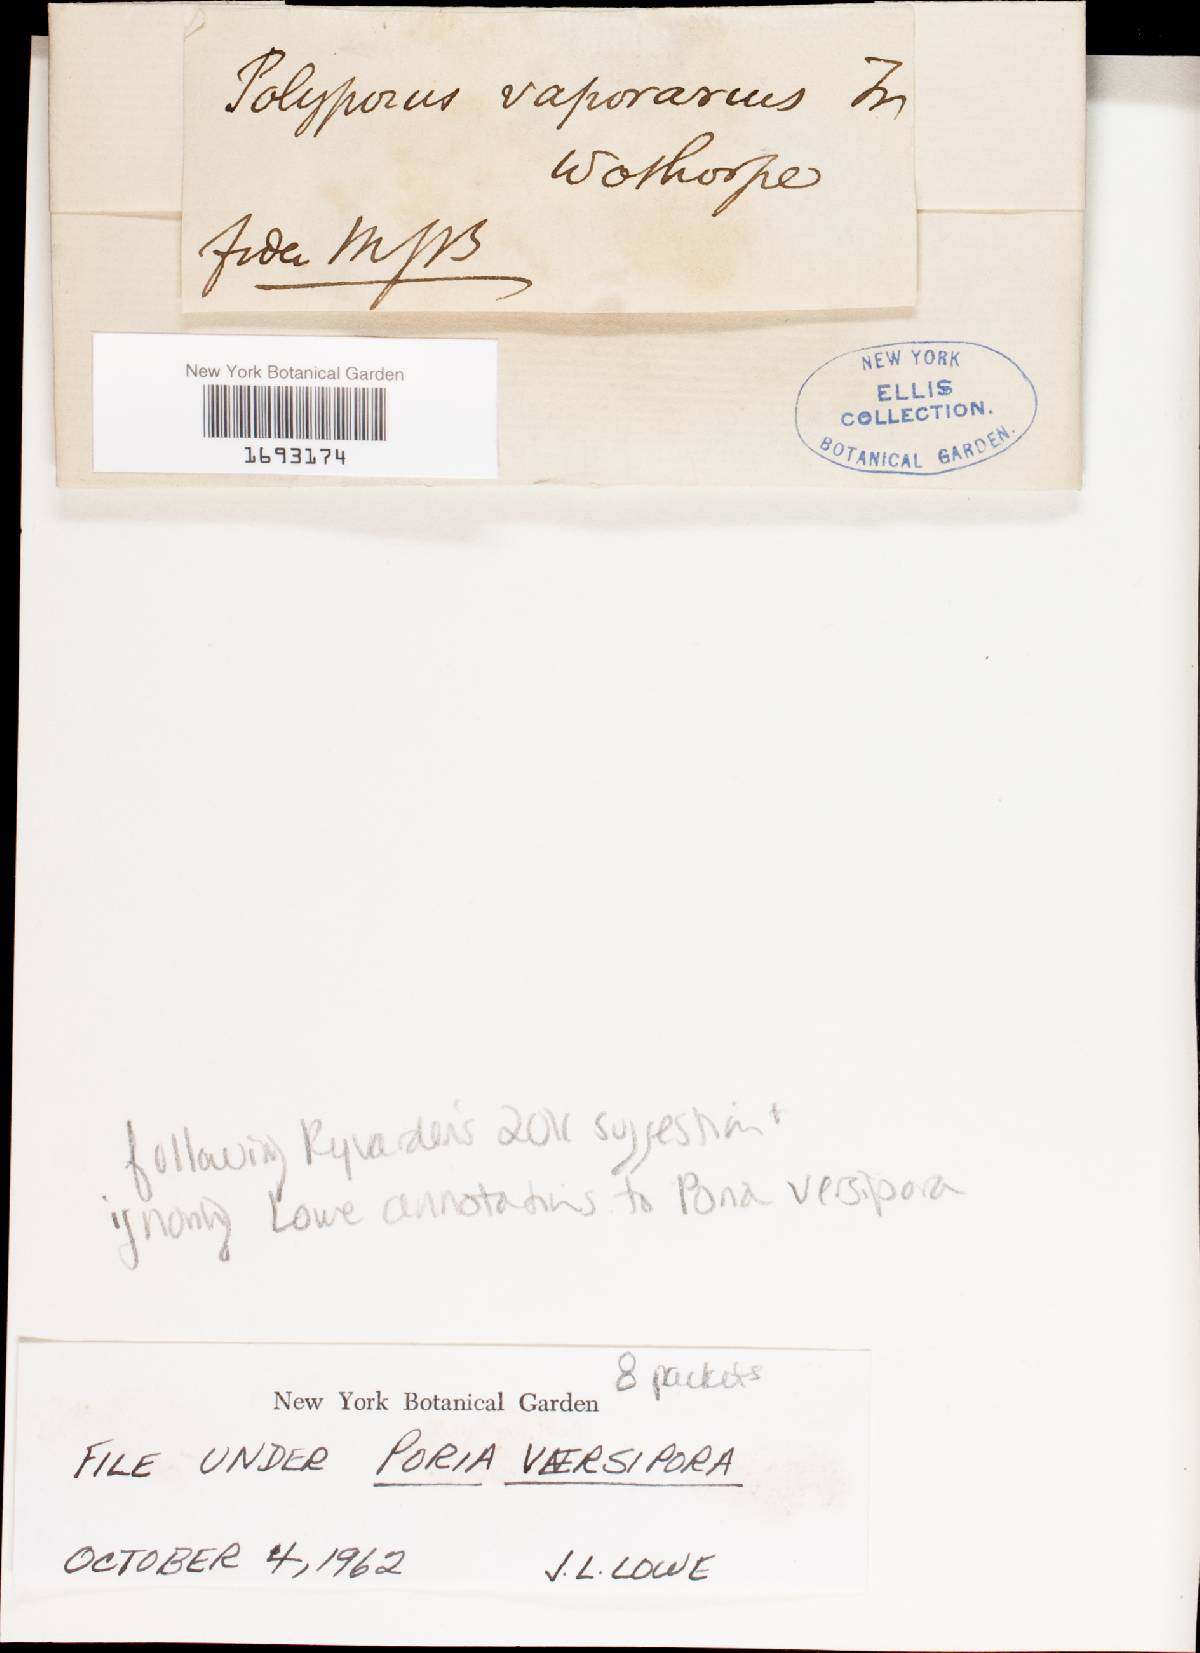 Polyporus vaporarius Fr
Wothorpe
fide MJB
New York Botanical Garden
1693174
NEW YORK
ELLIS
COLLECTION.
BOTANICAL GARDEN.
following Ryvarden's 2011 suggestion +
ignoring Lowe annotations to Poria versipora
8 packets
New York Botanical Garden
FILE UNDER PORIA VERSIPORA
OCTOBER 4, 1962 J.L. LOWE